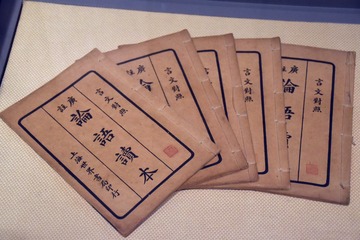 言文對照
廣註
論語讀本
上海世界書局印行
言文對照
廣註
論
言文對照
言文對照
廣註
論語讀本